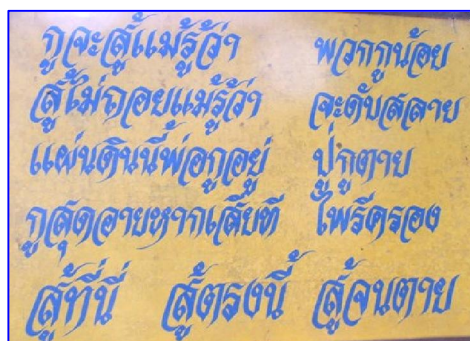 กูจะสู้แม้รู้ว่า พวกกูน้อย
สู้ไม่ถอยแม้รู้ว่า จะดับสลาย
แผ่นดินนี้พ่อกูอยู่ ปู่กูตาย
กูสุดอายหากเสียที ไพรีครอง
สู้ที่นี่ สู้ตรงนี้ สู้จนตาย